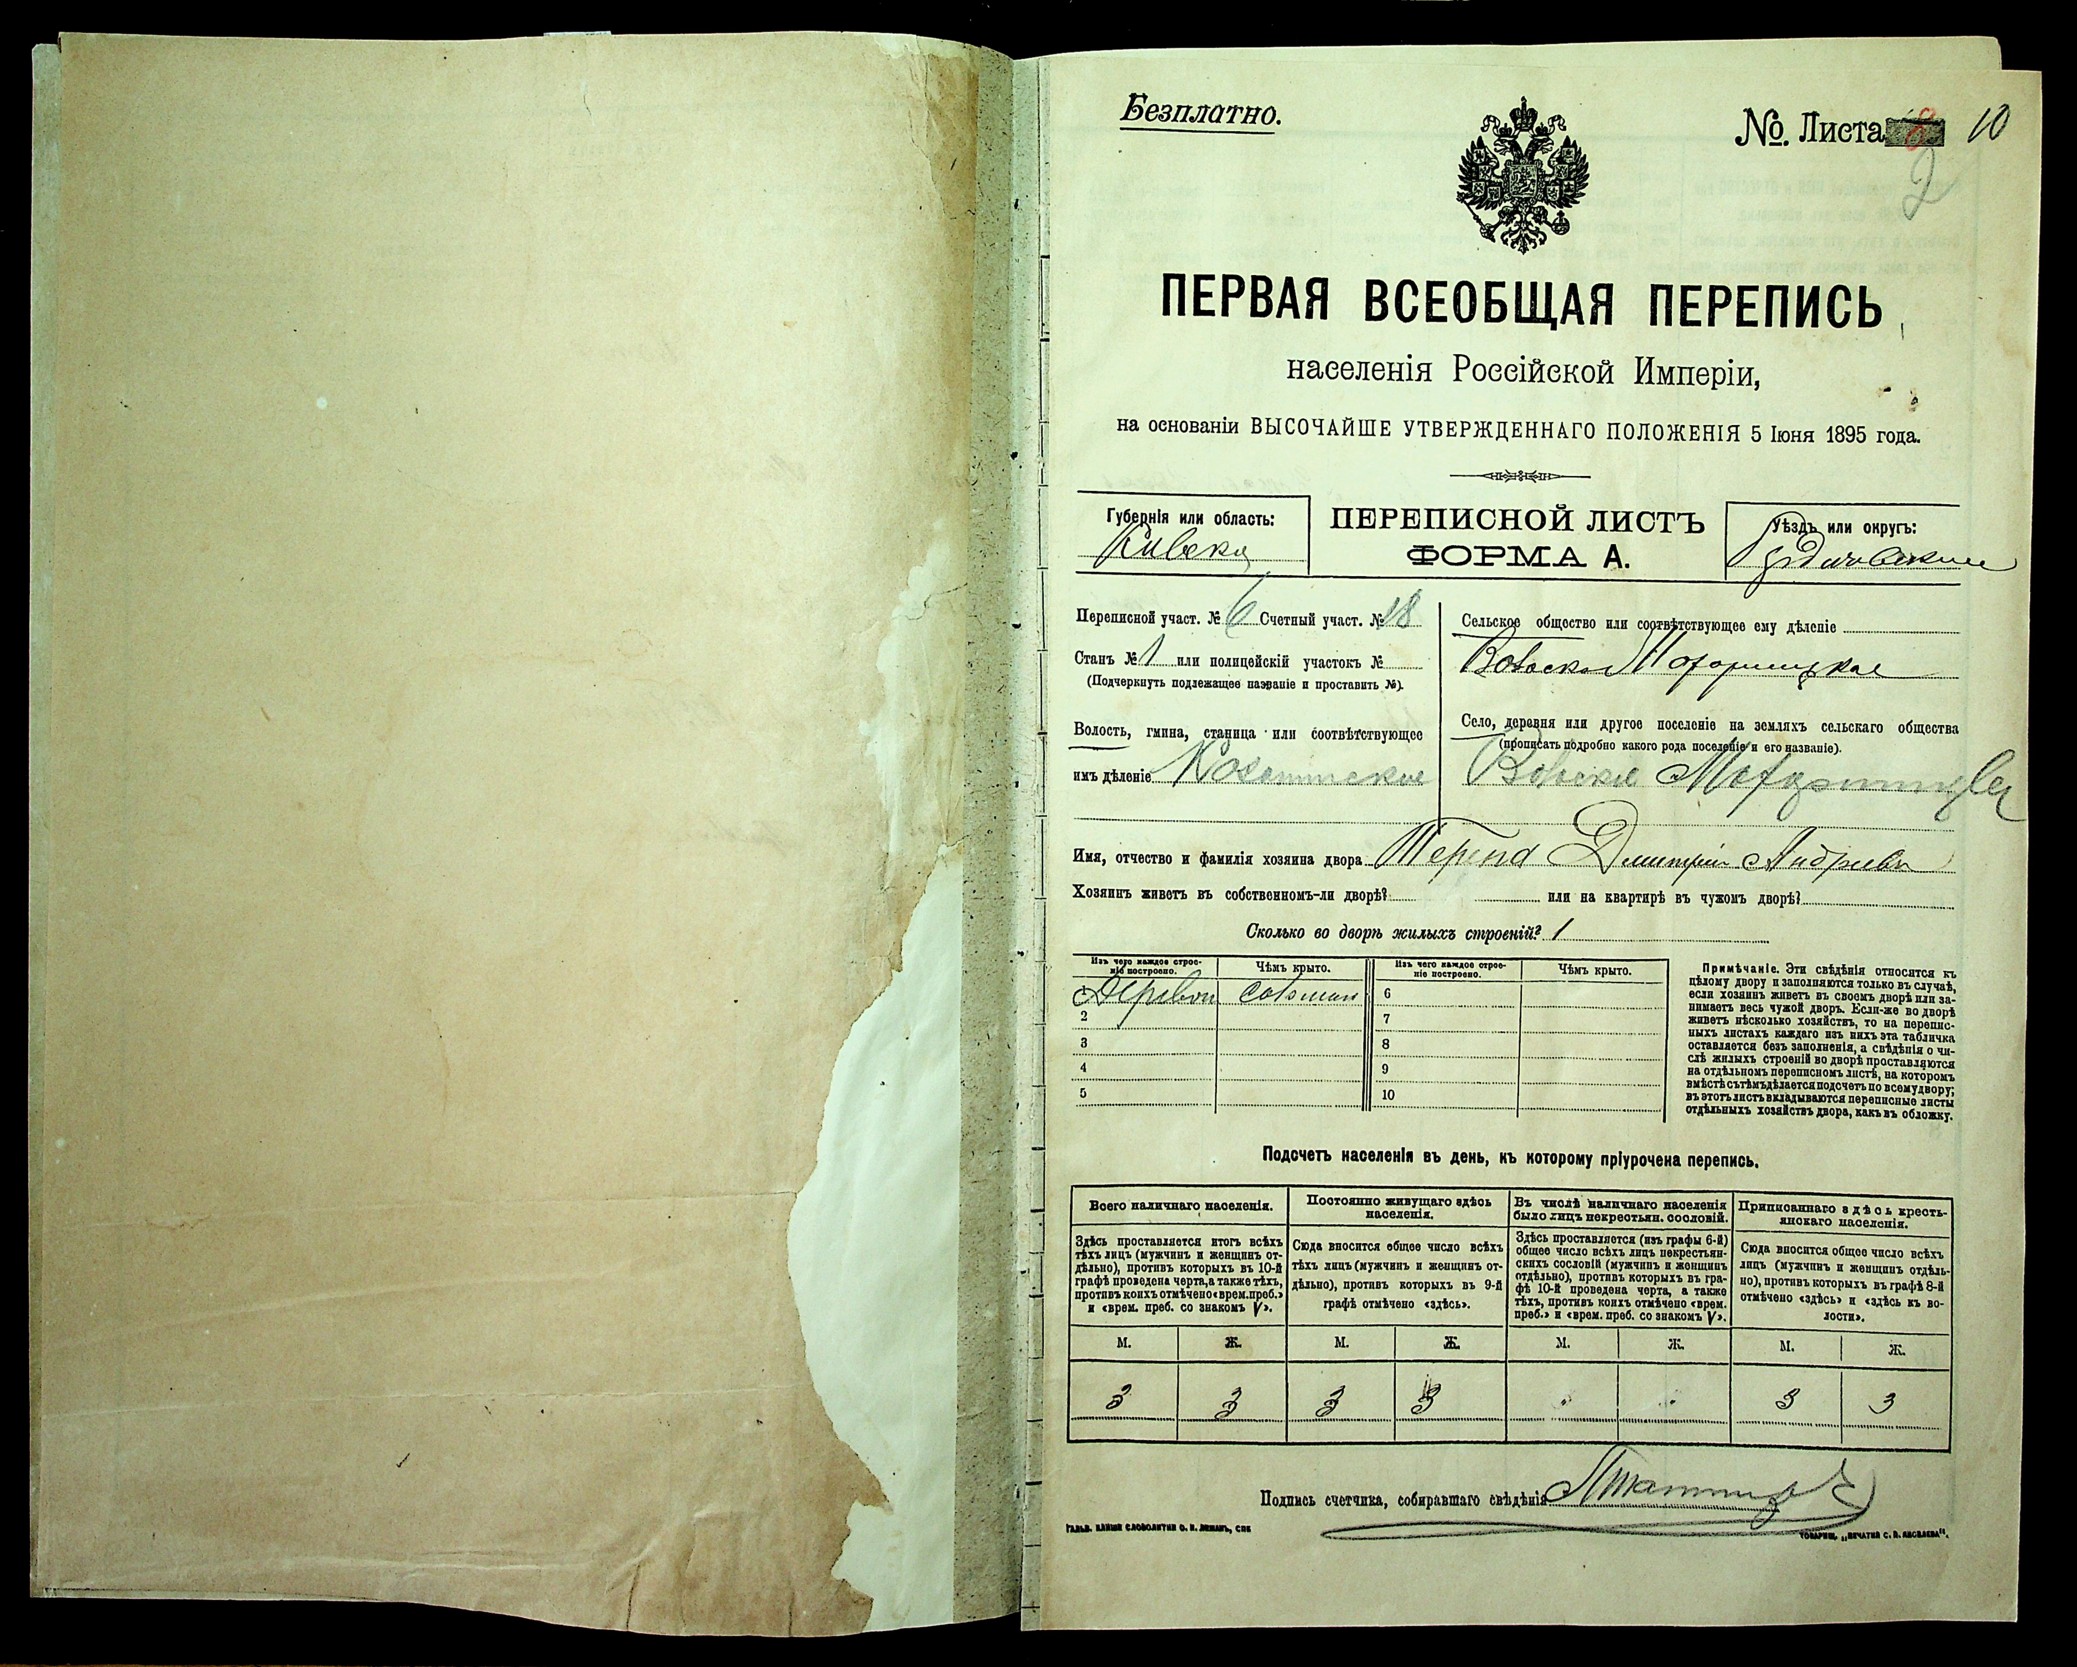 Безплатно.
№. Листа 10
2
ПЕРВАЯ ВСЕОБЩАЯ ПЕРЕПИСЬ
населенія Россійской Имперіи,
на основаніи ВЫСОЧАЙШЕ УТВЕРЖДЕННАГО ПОЛОЖЕНІЯ 5 Іюня 1895 года.
Губернія или область:
ПЕРЕПИСНОЙ ЛИСТЪ
ФОРМА А.
Уѣздъ или округъ:
Переписной участ. № 6 Счетный участ. № 18
Станъ № 1 или полицейскій участокъ №
(Подчеркнуть подлежащее названіе и проставить №).
Волость, гмина, станица или соотвѣтствующее
имъ дѣленіе
Сельское общество или соотвѣтствующее ему дѣленіе
Село, деревня или другое поселеніе на земляхъ сельскаго общества
(прописать подробно какого рода поселеніе и его названіе).
Имя, отчество и фамилія хозяина двора Дмитрій
Хозяинъ живетъ въ собственномъ-ли дворѣ? или на квартирѣ въ чужомъ дворѣ?
Сколько во дворѣ жилыхъ строеній? 1
Изъ чего каждое строе-
ніе построено.
Чѣмъ крыто.
Изъ чего каждое строе-
ніе построено.
Чѣмъ крыто.
6
2
7
3
8
4
9
5
10
Примѣчаніе. Эти свѣдѣнія относятся къ
цѣлому двору и заполняются только въ случаѣ,
если хозяинъ живетъ въ своемъ дворѣ или за-
нимаетъ весь чужой дворъ. Если-же во дворѣ
живетъ нѣсколько хозяйствъ, то на перепис-
ныхъ листахъ каждаго изъ нихъ эта табличка
оставляется безъ заполненія, а свѣдѣнія о чи-
слѣ жилыхъ строеній во дворѣ проставляются
на отдѣльномъ переписномъ листѣ, на которомъ
вмѣстѣ съ тѣмъ дѣлается подсчетъ по всему двору;
въ этотъ листъ вкладываются переписные листы
отдѣльныхъ хозяйствъ двора, какъ въ обложку.
Подсчетъ населенія въ день, къ которому пріурочена перепись.
Всего наличнаго населенія.
Здѣсь проставляется итогъ всѣхъ
тѣхъ лицъ (мужчинъ и женщинъ от-
дѣльно), противъ которыхъ въ 10-й
графѣ проведена черта, а также тѣхъ,
противъ коихъ отмѣчено «врем. преб.»
и «врем. преб. со знакомъ V».
Постоянно живущаго здѣсь
населенія.
Сюда вносится общее число всѣхъ
тѣхъ лицъ (мужчинъ и женщинъ от-
дѣльно), противъ которыхъ въ 9-й
графѣ отмѣчено «здѣсь».
Въ числѣ наличнаго населенія
было лицъ некрестьян. сословій.
Здѣсь проставляется (изъ графы 6-й)
общее число всѣхъ лицъ некрестьян-
скихъ сословій (мужчинъ и женщинъ
отдѣльно), противъ которыхъ въ гра-
фѣ 10-й проведена черта, а также
тѣхъ, противъ коихъ отмѣчено «врем.
преб.» и «врем. преб. со знакомъ V».
Приписаннаго здѣсь кресть-
янскаго населенія.
Сюда вносится общее число всѣхъ
лицъ (мужчинъ и женщинъ отдѣль-
но), противъ которыхъ въ графѣ 8-й
отмѣчено «здѣсь» и «здѣсь къ во-
лости».
М. Ж. М. Ж. М. Ж. М. Ж.
3 3 3 3 3 3
Подпись счетчика, собиравшаго свѣдѣнія